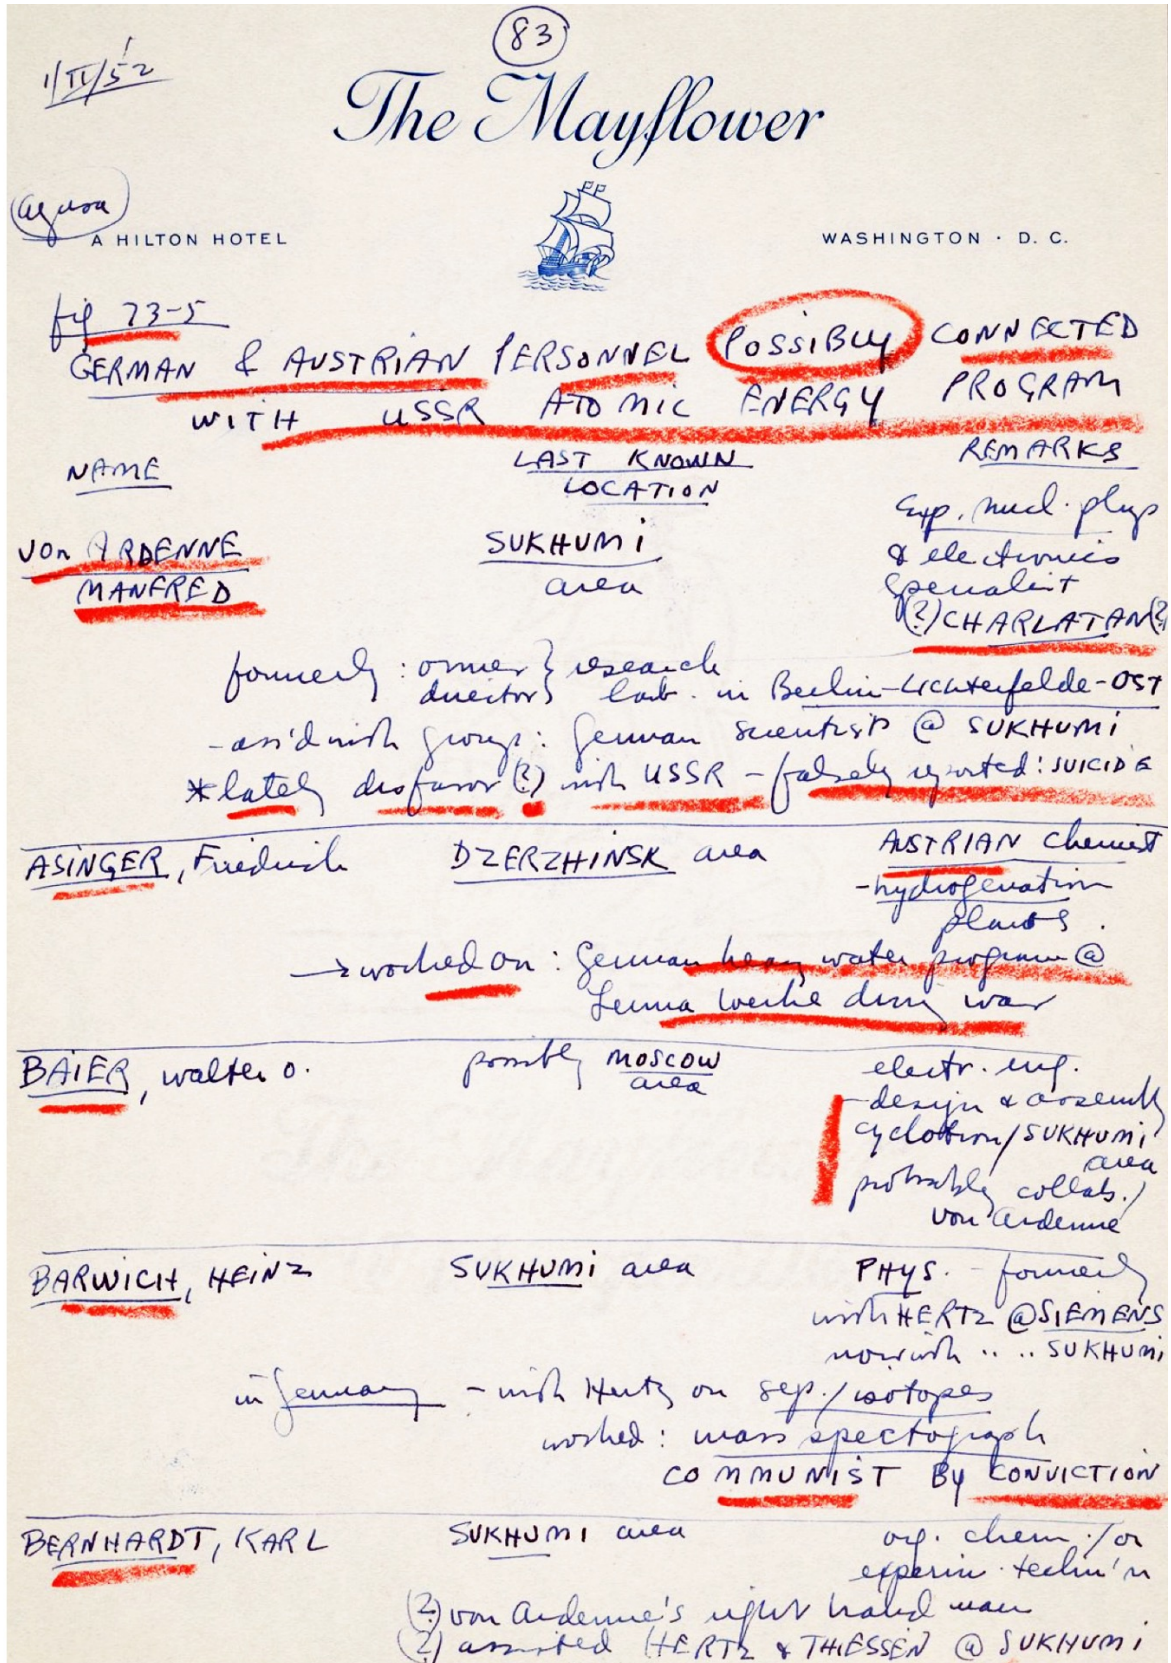 83
1/II/52
The Mayflower
A HILTON HOTEL
WASHINGTON · D. C.
fig 73-5
GERMAN & AUSTRIAN PERSONNEL POSSIBLY CONNECTED
WITH USSR ATOMIC ENERGY PROGRAM
NAME LAST KNOWN LOCATION REMARKS
von ARDENNE MANFRED
SUKHUMI area
Exp. nucl. phys
& electronics
specialist
(?) CHARLATAN (?)
formerly: owner } research
director } lab. in Berlin-Lichterfelde-OST
- ass'd with group: German scientists @ SUKHUMI
*lately disfavor (?) with USSR - falsely reported: SUICIDE
ASINGER, Friedrich DZERZHINSK area AUSTRIAN Chemist
- hydrogenation
plants.
→ worked on: German heavy water program @
Leuna Werke during war
BAIER, Walter O. possibly MOSCOW area electr. eng.
- design & assembly
cyclotron / SUKHUMI
area
probably collab. /
von Ardenne
BARWICH, HEINZ SUKHUMI area PHYS. - formerly
with HERTZ @ SIEMENS
now with .. .. SUKHUMI
in Germany - with Hertz on sep. / isotopes
worked: mass spectograph
COMMUNIST By CONVICTION
BERNHARDT, KARL SUKHUMI area org. chem. / or
experim. techn'n
(?) von Ardenne's right hand man
(?) assisted HERTZ & THIESSEN @ SUKHUMI